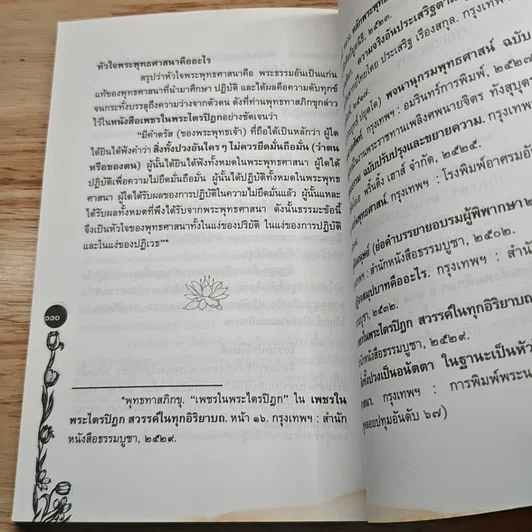 หัวใจพระพุทธศาสนาคืออะไร
สรุปว่าหัวใจพระพุทธศาสนาคือ พระธรรมอันเป็นแก่น
แท้ของพุทธศาสนาที่นำมาศึกษา ปฏิบัติ และได้ผลคือความดับทุกข์
จนกระทั่งบรรลุถึงความว่างจากตัวตน ดังที่ท่านพุทธทาสภิกขุกล่าว
ไว้ในหนังสือเพชรในพระไตรปิฎกอย่างชัดเจนว่า
"มีคำตรัส (ของพระพุทธเจ้า) ที่ถือได้เป็นหลักว่า ผู้ใด
ได้ยินได้ฟังคำว่า สิ่งทั้งปวงอันใคร ๆ ไม่ควรยึดมั่นถือมั่น (ว่าตน
หรือของตน) ผู้นั้นได้ยินได้ฟังทั้งหมดในพระพุทธศาสนา ผู้ใดได้
ปฏิบัติเพื่อความไม่ยึดมั่นถือมั่น ผู้นั้นได้ปฏิบัติทั้งหมดในพระพุทธ
ศาสนา ผู้ใดได้รับผลของการปฏิบัติในความไม่ยึดมั่นแล้ว ผู้นั้นแหละ
ได้รับผลทั้งหมดที่พึงได้รับจากพระพุทธศาสนา ดังนั้นธรรมะข้อนี้
จึงเป็นหัวใจของพุทธศาสนาทั้งในแง่ของปริยัติ ในแง่ของการปฏิบัติ
และในแง่ของปฏิเวธ"*
๑๑๐
*พุทธทาสภิกขุ. "เพชรในพระไตรปิฎก" ใน เพชรใน
พระไตรปิฎก สวรรค์ในทุกอิริยาบถ. หน้า ๑๖. กรุงเทพฯ : สำนัก
หนังสือธรรมบูชา, ๒๕๒๙.
หลักพระพุทธ
๒๕๒๓.
ความจริงอันประเสริฐตาม
ไทยโดย ประเสริฐ เรืองสกุล. กรุงเทพ
พจนานุกรมพุทธศาสน์ ฉบับ
กรุงเทพฯ : อมรินทร์การพิมพ์, ๒๕๒๗
งานพระราชทานเพลิงศพนายจิตร ทังสุบุตร
ฉบับปรับปรุงและขยายความ. กรุงเทพฯ
พริ้นติ้ง เฮาส์ จำกัด, ๒๕๒๕.
พุทธศาสน์. กรุงเทพฯ : โรงพิมพ์อาศรมอักษร
(ย่อคำบรรยายอบรมผู้พิพากษา
: สำนักหนังสือธรรมบูชา, ๒๕๐๒.
ปฏิจจสมุปบาทคืออะไร. กรุงเทพฯ : สำนัก
ธรรมบูชา, ๒๕๓๒.
เพชรในพระไตรปิฎก สวรรค์ในทุกอิริยาบถ
สำนักหนังสือธรรมบูชา, ๒๕๒๙.
ทั้งปวงเป็นอนัตตา ในฐานะเป็นหัว
กรุงเทพฯ : การพิมพ์พระนคร
ลอยปทุมอันดับ ๖๗)